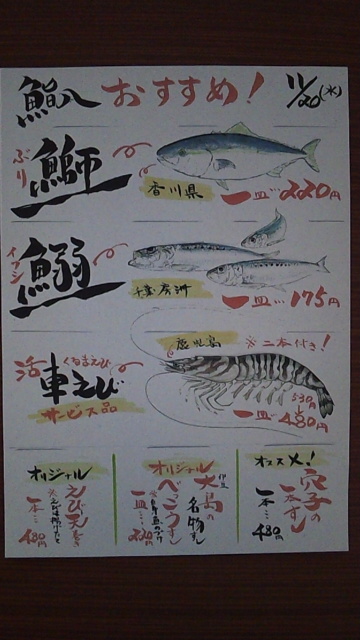 鮨八 おすすめ! 11/20(水)
ぶり
鰤
香川県
一皿…220円
イワシ
鰯
一皿…175円
鹿児島
※二本付き!
活 車えび
くるまえび
サービス品
530円
一皿…480円
オリジナル
えび天巻き
一本…480円
オリジナル
伊豆大島の
べっこうすし
名物すし
一皿…220円
オススメ!
穴子の
一本すし
一本…480円